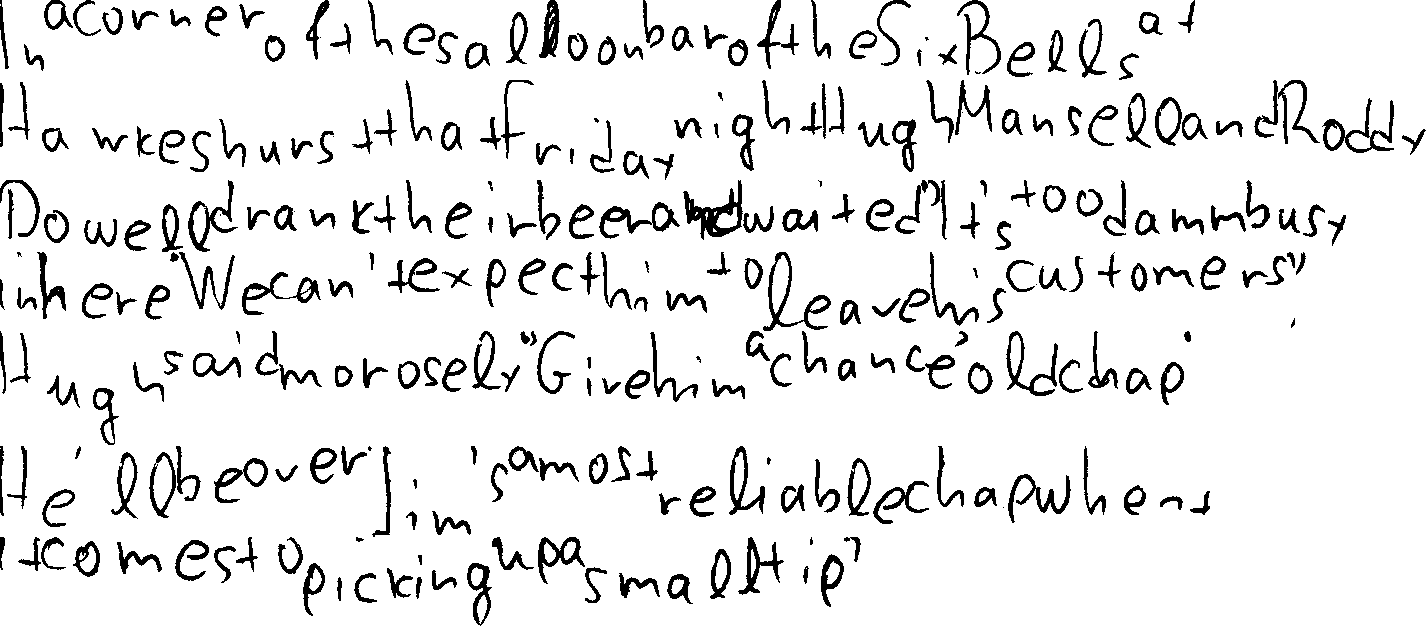 In a corner of the salloon bar of the Six Bells at
Hawkeshurst that Friday night Hugh Mansell and Roddy
Dowell drank their beer and waited "It's too damm busy
in here "We can't expect him to leave his customers"
Hugh said morosely "Give him a chance' old chap.
He'll be over. Jim's a most reliable chap when
it comes to picking up a small tip"